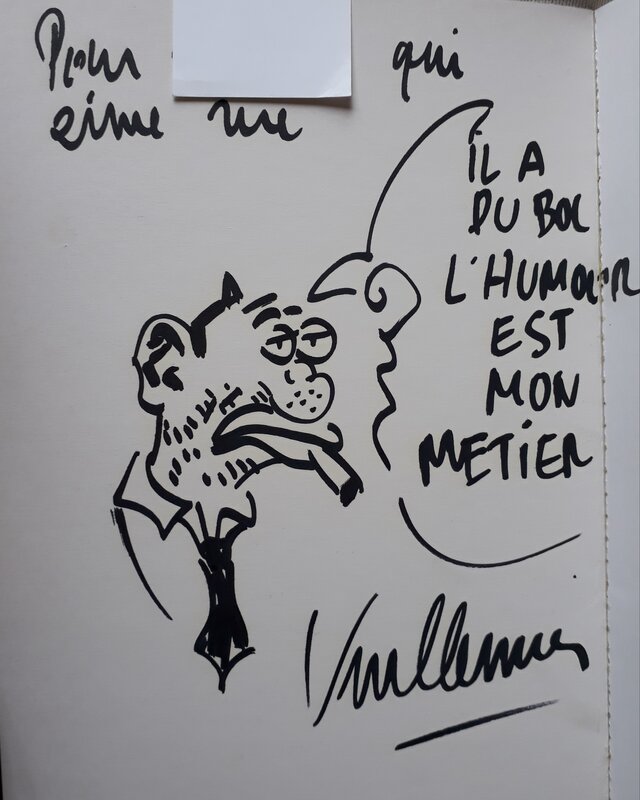 Pour qui
aime rire
IL A
DU BOL
L'HUMOUR
EST
MON
METIER
Vuillemin